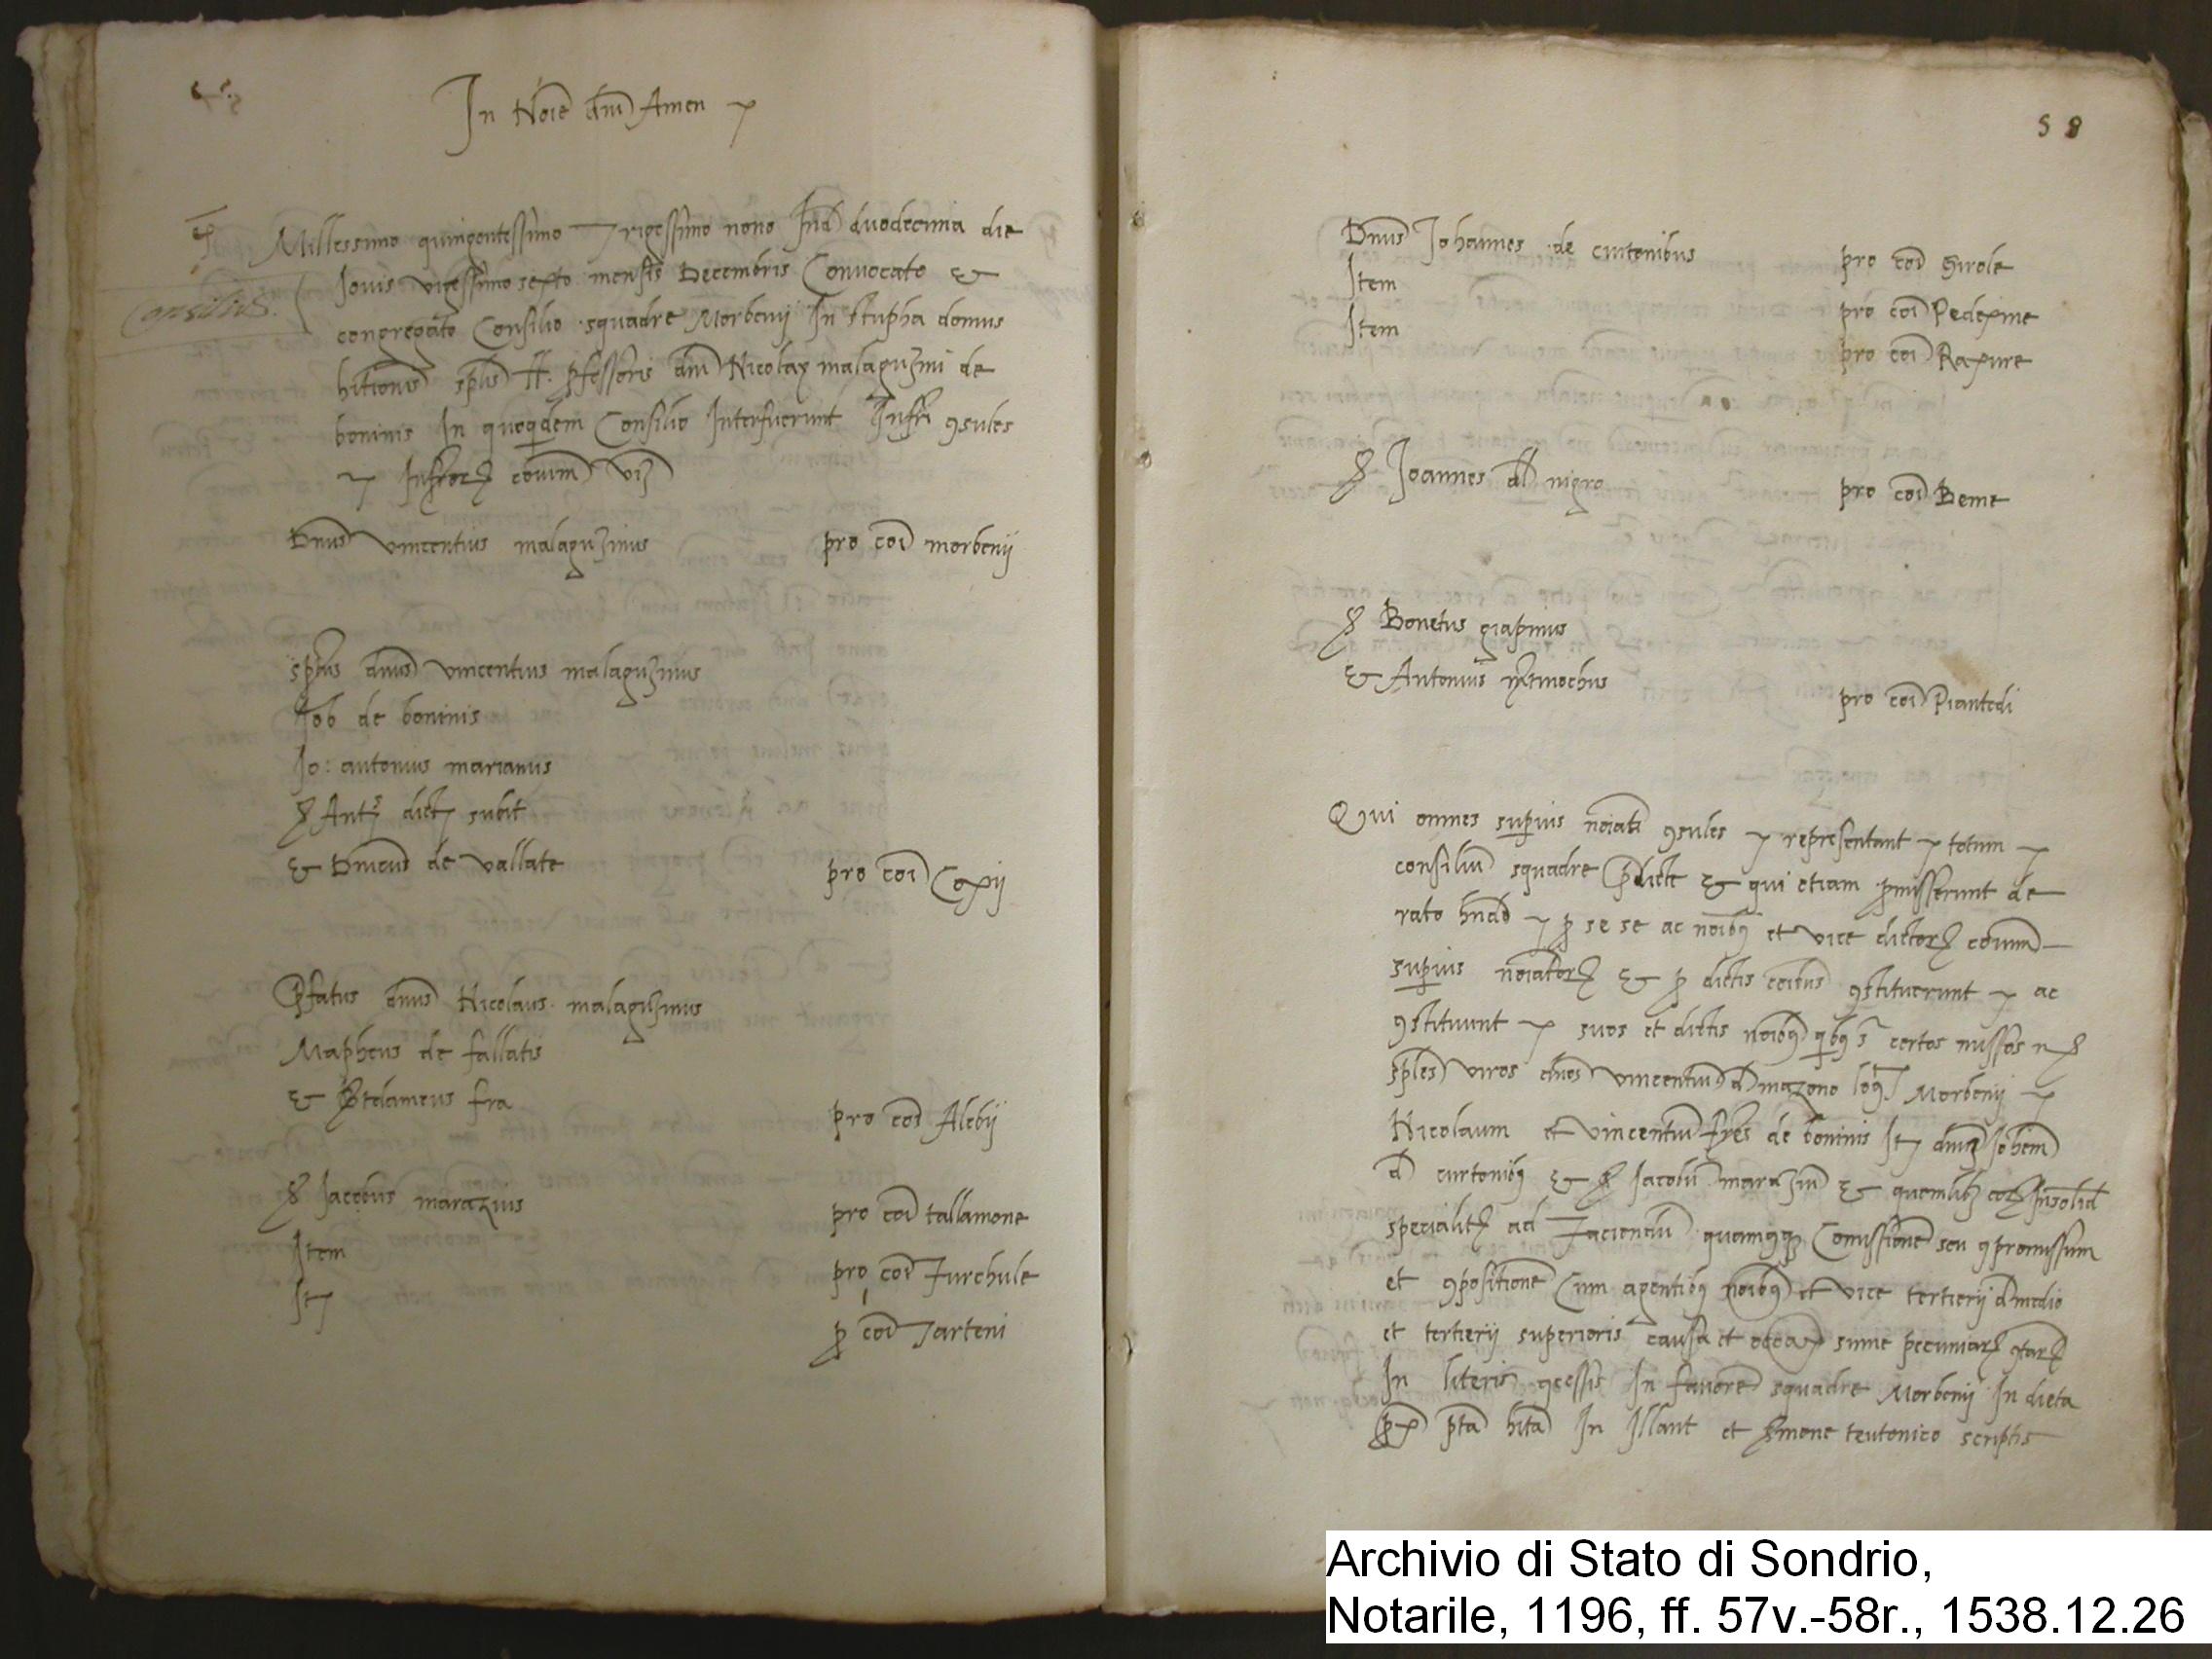 In Noie dni Amen
Millessimo quingentessimo Trigessimo nono Ind duodecima die
Consiliu
Jovis vigessimo sexto mensis Decembris Convocato &
congregato Consilio squadre Morbenij In stupha domus
hitionis splis H. pfessoris dni Nicolay malaguzini de
boninis In quoqdem Consilio Interfuerunt Infri 9sules
Infror couium viz
Dnus vincentius malaguzinus pro coi morbenij
sptus dnus vincentius malaguzinus
Job de boninis
Io: antonius marianus
S Ant dict subit
& Dnicus de vallate pro coi Coxij
Pfatus dnus Nicolaus malaguzinus
Mapheus de fallatis
& Btolameus fra pro coi Alebij
S Jacobus marazius pro coi tallamone
Item pro coi Furchule
It p coi Tarteni
58
Dnus Johannes de curtonibus pro coi Girole
Item pro coi Pedexine
Item pro coi Raxure
S Joannes d nigro pro coi Beme
S Bonetus giapinus
& Antonius pro coi Piantedi
Qui omnes superius noiati 9sules representant totum
consiliu squadre pdicte & qui etiam pmisserunt de
rato hndo p se se ac noibq et vice dictor couium
superius noiator & p dictis coibus 9stituerunt ac
9stituunt suos et dictis noibq qbq s certos missos n
sples viros dnos vincentiu d mazono log Morbenij
Nicolaum et vincentiu fres de boninis It dnu Johem
d curtonibq & S Jacobu maraziu & quemlibz eor Insolid
specialit ad Faciendu quamcqz Comissione seu 9promissum
et 9positione Cum agentibq noibq et vice tertierij d medio
et tertierij superioris causa et occax sume pecuniar 9tar
In literis 9cessis In favore squadre Morbenij In dieta
px pta hita In Illant et smone teutonico scriptis
Archivio di Stato di Sondrio,
Notarile, 1196, ff. 57v.-58r., 1538.12.26